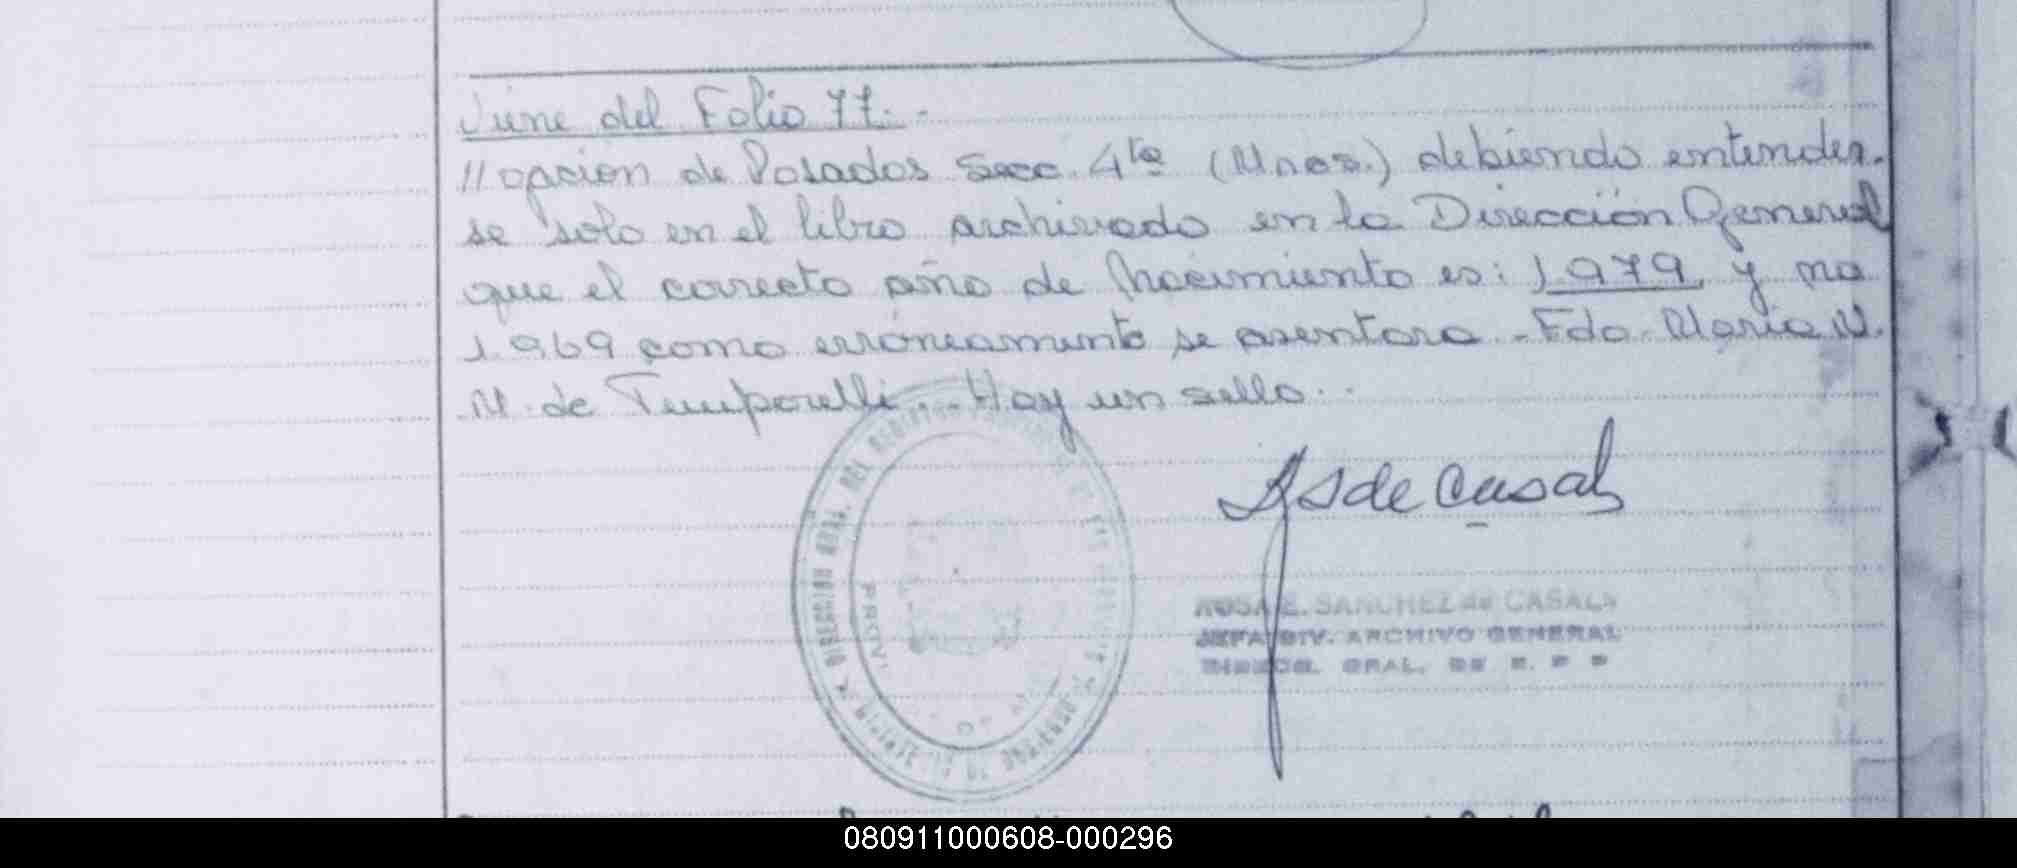 Viene del Folio 77.-
//opcion de Posadas Secc. 4ta (Mnes.) debiendo entender-
se solo en el libro archivado en la Dirección General
que el correcto año de Nacimiento es: 1.979, y no
1.969 como erróneamente se asentara.- Fdo. Maria N.
M. de Temporelli. Hay un sello.-
A S de Casal
ROSA E. SANCHEZ de CASALA
JEFA DIV. ARCHIVO GENERAL
GRAL. DE
DIRECCION GRAL. DEL REGISTRO
080911000608-000296